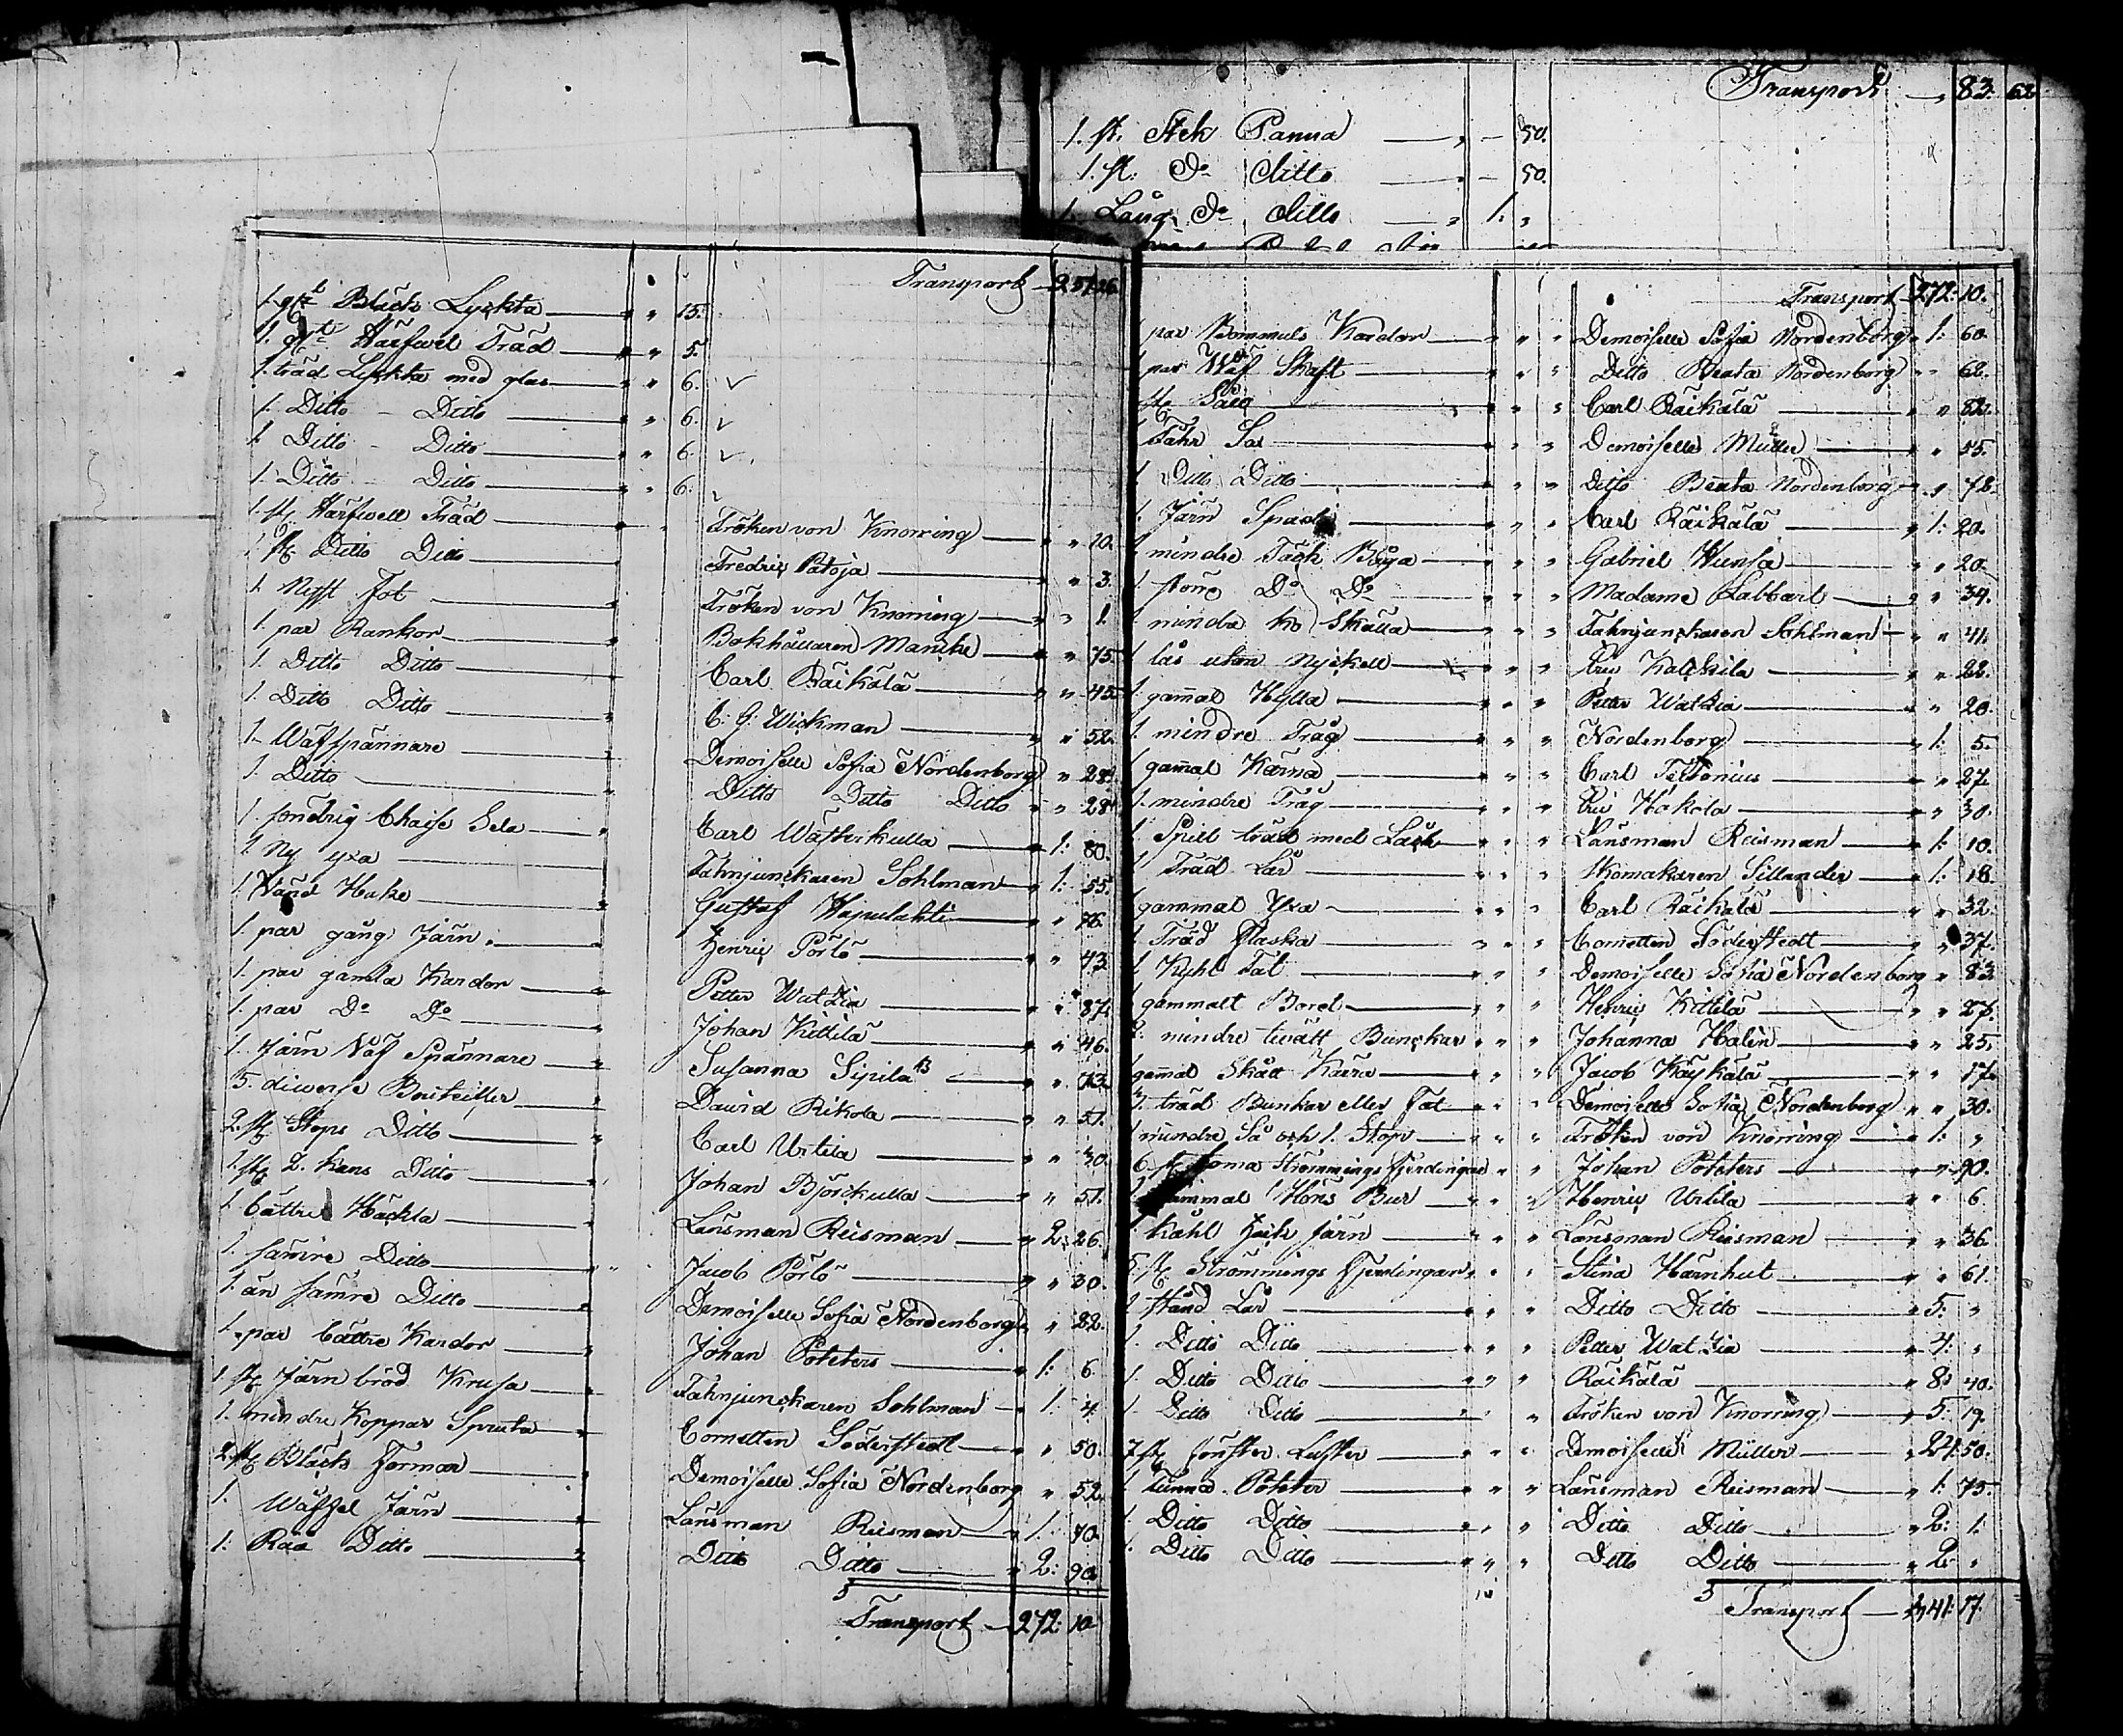 Transport — 83. 62
1. st. Stek Panna — " — 50.
1. st. Do ditto — " — 50.
1. Lång Do ditto — " 1. "
Transport — 257.26
1. gl Bläck Lyckta — " " 15.
1. Härfwel Träd — " " 5.
1. träd Lyckta med glas — " " 6.
1. Ditto — Ditto — " " 6.
1. Ditto — Ditto — " " 6.
1. Ditto — Ditto — " " 6.
1. st Härfwell Träd — " Fröken von Knorring — " 10.
1. st. Ditto Ditto — " Fredric Patoja — " 3.
1. Nysst Fot — " Fröken von Knorring — " 1.
1. par Rankor — " Bokhållaren Manike — " 75.
1. Ditto Ditto — " Carl Räikälä — " 45.
1. Ditto Ditto — " C: G: Wickman — " 52.
1. Wäfspännare — " Demoiselle Sofia Nordenborg " 28.
1. Ditto — " Ditto Ditto Ditto " 28.
1. söndrig Chaise Sela — " Carl Wästerkulla — 1: 80.
1. Ny yxa — " Fahnjunckaren Sohlman — 1: 55.
1. Wänd Hake — " Gustaf Hapulahti — " 76.
1. par gång Järn — " Henric Pörlö — " 43.
1. par gamla Kardor — " Petter Watzia — " 87.
1. par Do Do — " Johan Kittilä — " 46.
1. Järn Wäf Spännare — " Susanna Sipilä — " 73.
5. diverse Bouteiller — " David Rikola — " 51.
2. st Stops Ditto — " Carl Urtila — " 30.
1. st 2. Kans Ditto — " Johan Björckulla — " 51.
1. bättre Häckla — " Länsman Reisman — " 2: 26.
1. sämre Ditto — " Jacob Pörlö — " 30.
1. än sämre Ditto — " Demoiselle Sofia Nordenborg " 22.
1. par bättre Kardor — " Johan Poteters — " 1: 6.
1. st Järn bröd Krusa — " Fahnjunckaren Sohlman — 1: 4.
1. mindre Koppar Spruta — " Cornetten Söderstedt — " 50.
2. st Bläcks Formar — " Demoiselle Sofia Nordenborg " 52.
1. Wåffel Järn — " Länsman Reisman — " 1: 70.
1. Råå Ditto — " Ditto Ditto — " 2: 90.
Transport — 272: 10.
Transport — 272: 10.
1 par Bommuls Kardor — " " " Demoiselle Sofia Nordenborg " 1: 60.
1 par Wäf Skaft — " " " Ditto Beata Nordenborg " " 62.
1 st Såll — " " " Carl Räikälä — " " 82.
1 Fåhr Sax — " " " Demoiselle Müller — " " 55.
1 Ditto Ditto — " " " Ditto Beata Nordenborg " " 78.
1. Järn Spade — " " " Carl Räikälä — " 1: 20.
1 mindre Täck Båga — " " " Gabriel Wensa — " " 20.
1 större Do Do — " " " Madame Labbart — " " 34.
1 mindre Ko Skälla — " " " Fahnjunckaren Sohlman — " " 41.
1 lås utan Nyckell — " " " Eric Kalckila — " " 22.
1. gam̄al Hylla — " " " Petter Watzia — " " 20.
1. mindre Tråg — " " " Nordenborg — " 1: 5.
1 gam̄al Kärna — " " " Carl Tertonius — " " 27.
1. mindre Tråg — " " " Eric Hakola — " " 30.
1 Spill träd med Låck — " " " Länsman Reisman — " 1: 10.
1 Träd Lår — " " " Skomakaren Sillander — " 1: 18.
1 gammal Yxa — " " " Carl Räikälä — " " 32.
1 Träd Flaska — " " " Cornetten Söderstedt — " " 37.
1 Kyhl Fat — " " " Demoiselle Sofia Nordenborg " 83.
1 gammalt Bord — " " " Henric Kittilä — " " 27.
2. mindre tvätt Bunckar " " " Johanna Halin — " " 25.
1 gam̄al Skått Kärra — " " " Jacob Käykälä — " " 17.
3. träd Bunkar eller Fat — " " " Demoiselle Sofia Nordenborg " " 30.
1 mindre Så och 1. Stop — " " " Fröken von Knorring — " 1: "
6. st toma Strömmings Fjerdingar " " " Johan Poteters — " " 90.
1 gammal Höns Bur — " " " Henric Urtila — " " 6.
1. Kåhl Hack järn — " " " Länsman Reisman — " " 36.
5 st Strömmings Fjerdingar " " " Stina Härnhut — " " 61.
1 Stånd Lår — " " " Ditto Ditto — " 5. "
1. Ditto Ditto — " " " Petter Watzia — " 4: "
1. Ditto Ditto — " " " Räikälä — " 8: 40.
1. Ditto Ditto — " " " Fröken von Knorring — " 5: 19.
7. st fönster Lufter — " " " Demoiselle Müller — " 24: 50.
1 tunna Poteter — " " " Länsman Reisman — " 1: 75.
1. Ditto Ditto — " " " Ditto Ditto — " 2: 1.
1. Ditto Ditto — " " " Ditto Ditto — " 2: "
Transport — 341: 17.